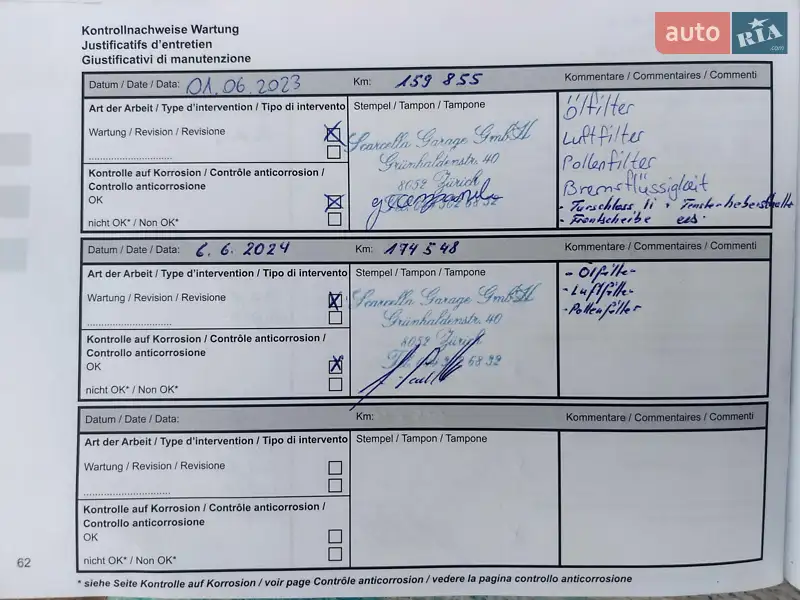 auto RIA .com
Kontrollnachweise Wartung
Justificatifs d'entretien
Giustificativi di manutenzione
Datum / Date / Data: 01.06.2023 Km: 159 855 Kommentare / Commentaires / Commenti
Art der Arbeit / Type d'intervention / Tipo di intervento Stempel / Tampon / Tampone Ölfilter
Wartung / Revision / Revisione Scarcella Garage GmbH Luftfilter
Grünhaldenstr. 40 Pollenfilter
Kontrolle auf Korrosion / Contrôle anticorrosion / 8052 Zürich Bremsflüssigkeit
Controllo anticorrosione
OK - Türschloss li + Fensterheberschalter
nicht OK* / Non OK* - Frontscheibe ers.
Datum / Date / Data: 6. 6. 2024 Km: 174 548 Kommentare / Commentaires / Commenti
Art der Arbeit / Type d'intervention / Tipo di intervento Stempel / Tampon / Tampone - Ölfilter
Wartung / Revision / Revisione Scarcella Garage GmbH - Luftfilter
Grünhaldenstr. 40 - Pollenfilter
Kontrolle auf Korrosion / Contrôle anticorrosion / 8052 Zürich
Controllo anticorrosione
OK
nicht OK* / Non OK*
Datum / Date / Data: Km: Kommentare / Commentaires / Commenti
Art der Arbeit / Type d'intervention / Tipo di intervento Stempel / Tampon / Tampone
Wartung / Revision / Revisione
Kontrolle auf Korrosion / Contrôle anticorrosion /
Controllo anticorrosione
OK
nicht OK* / Non OK*
62
* siehe Seite Kontrolle auf Korrosion / voir page Contrôle anticorrosion / vedere la pagina controllo anticorrosione